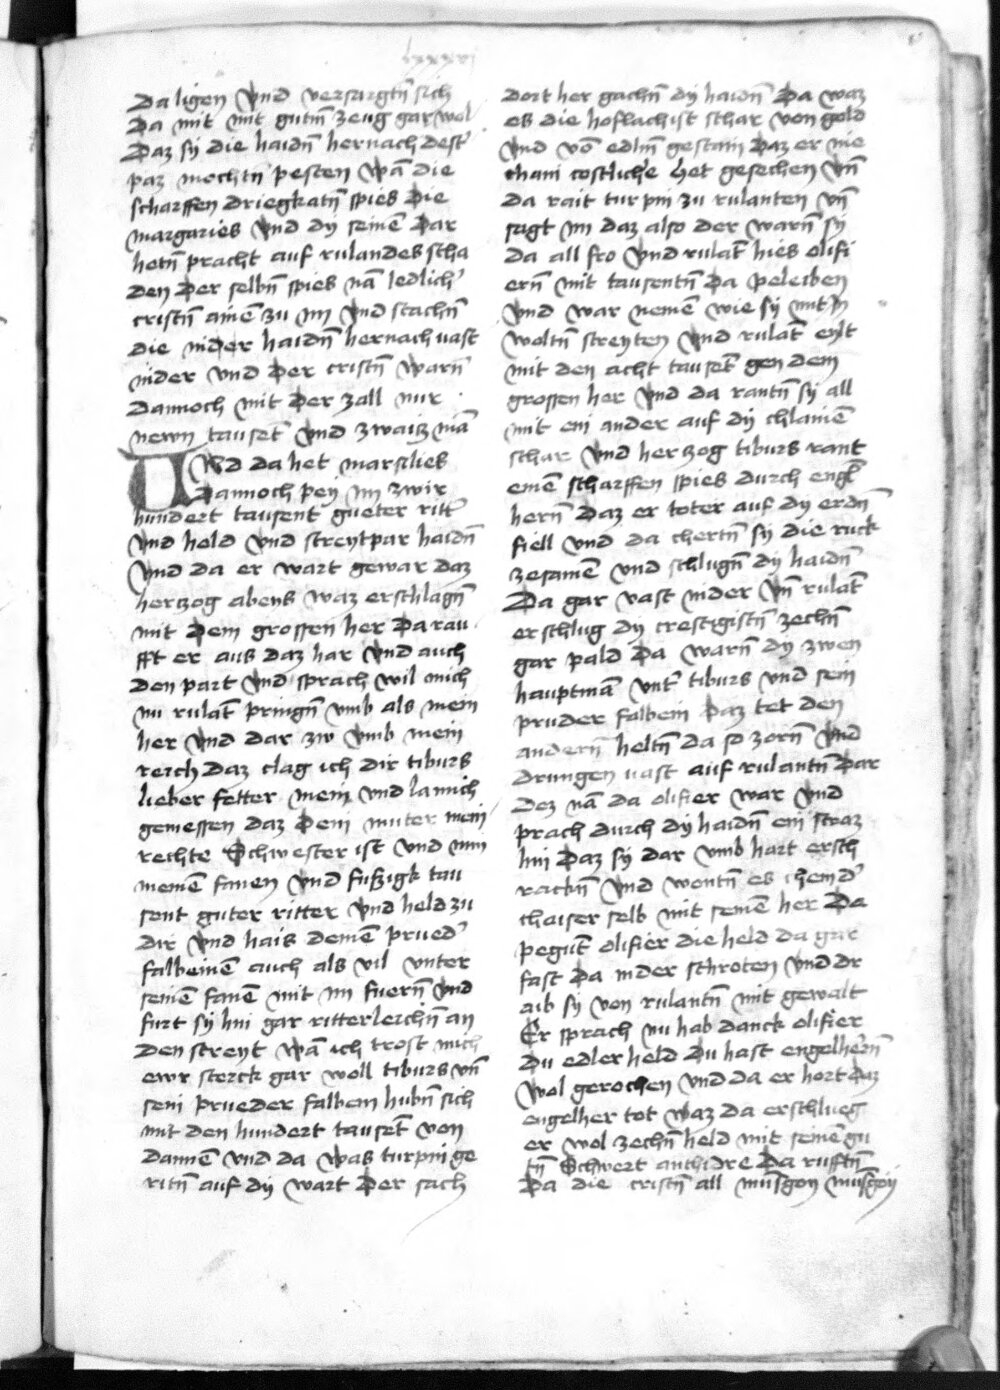 lxxxvi
da ligen vnd versargtn̄ sich
da mit mit gutm̄ zeug gar wol
daz sy die haidn̄ hernach dest'
paz mochtn̄ pesten wā die
scharffen driegkatn̄ spies die
margaries vnd dy seinē dar
hetn̄ pracht auf rulandes scha
den der selbn̄ spies nā ledlich'
cristn̄ ainē zu im vnd stachn̄
die nider haidn̄ hernach vast
nider vnd der cristn̄ warn̄
dannoch mit der zall nur
newn tauset̄ vnd zwaiz mā
Vnd da het marsilies
dannoch pey im zwir
hundert tausent gueter ritt'
vnd held vnd streytpar haidn̄
vnd da er wart gewar daz
herczog abens waz erschlagn̄
mit dem grossen her da rau
fft er aus daz har vnd auch
den part vnd sprach wil mich
nu rulāt pringn̄ vmb als mein
her vnd dar zw vmb mein
reich daz clag ich dir tiburs
lieber fetter mein vnd la mich
geniessen daz dein muter mein
rechte Schwester ist vnd nim
meinē fanen vnd fufzigk tau
sent guter ritter vnd held zu
dir vnd hais deinē prued'
falbeinē auch als vil vnter
seinē fanē mit im fuern̄ vnd
furt sy hin gar ritterleichn̄ an
den streyt wā ich trost mich
ewr sterck gar woll tiburs vn̄
sein prueder falbein hubn̄ sich
mit den hundert tauset̄ von
dannē vnd da was turpin ge
ritn̄ auf dy wart der sach
dort her gachn̄ dy haidn̄ da waz
es die hoflachist schar von gold
vnd vō edlm̄ gestain daz er nie
chain costlicher het gesechen vn̄
da rait turpin zu rulanten vn̄
sagt im daz also der warn̄ sy
da all fro vnd rulāt hies olifi
ern̄ mit tausentn̄ da peleiben
vnd war nemē wie sy mit in
woltn̄ streyten vnd rulāt eylt
mit den acht tauset̄ gen dem
grossen her vnd da rantn̄ sy all
mit ein ander auf dy chlainē
schar vnd herzog tiburs rant
einē scharffen spies durch engl'
hern̄ daz er toter auf dy erdn̄
fiell vnd da chertn̄ sy die ruck
zesamē vnd schlugn̄ dy haidn̄
da gar vast nider vn̄ rulāt
erschlug dy crestigistn̄ zechn̄
gar pald da warn̄ dy zwen
hauptmā vnt' tiburs vnd sein
pruder falbein daz tet den
andern̄ heltn̄ da so zorn̄ vnd
drungen vast auf rulantn̄ dar
dez nā da olifier war vnd
prach durch dy haidn̄ ein straz
hin daz sy dar vmb hart ersch
rackn̄ vnd wontn̄ es chem d'
chaiser selb mit seinē her da
pegūt olifier die held da gar
fast da nider schroten vnd dr
aib sy von rulantn̄ mit gewalt
Er sprach nu hab danck olifier
du edler held du hast engelhern̄
wol gerochen vnd da er hort daz
engelher tot waz da erschlueg
er wol zechn̄ held mit seinē gu
tn̄ Schwert anthidre da rufftn̄
da die cristn̄ all mūsgoy mūsgoy